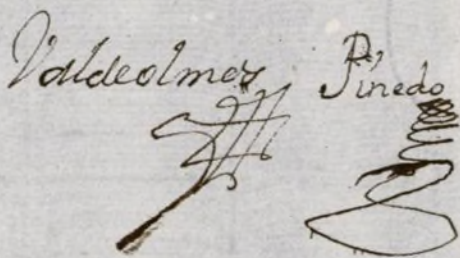 Valdeolmos Pinedo